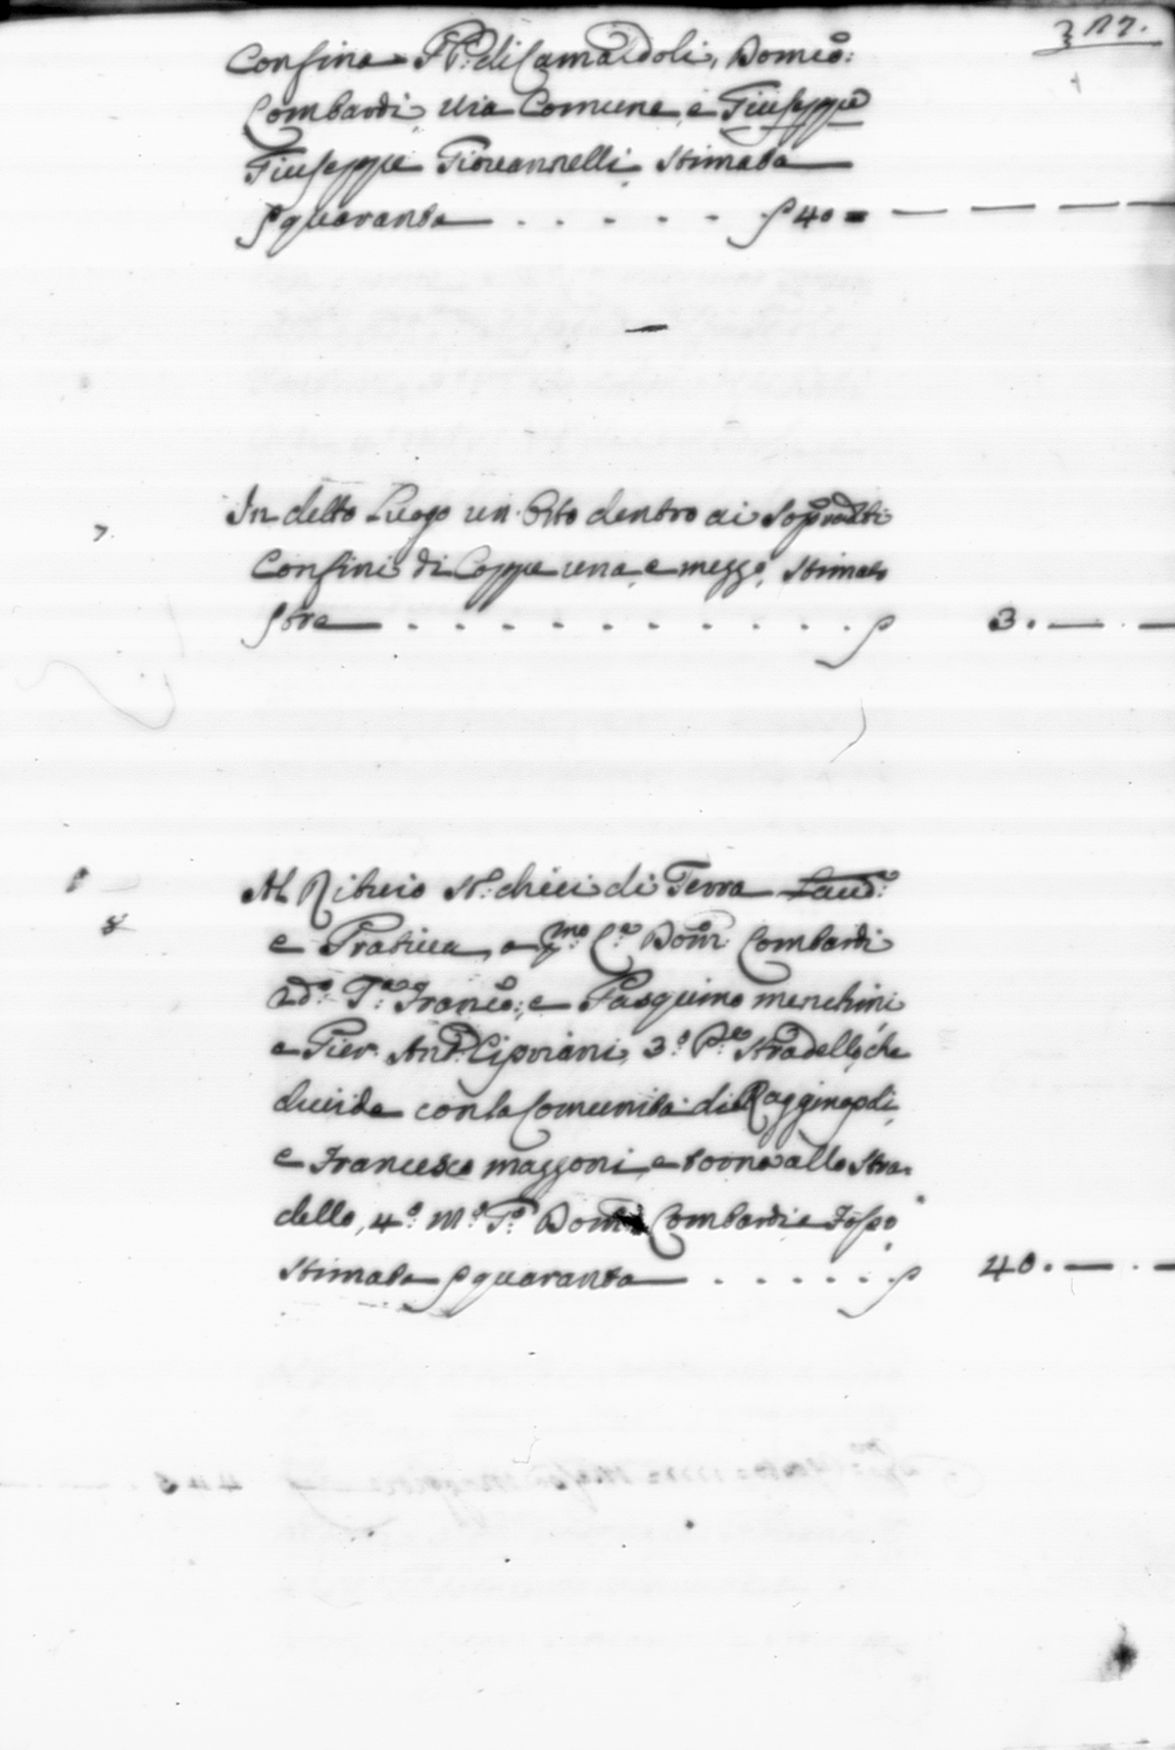 317.
Confina PP. di Camaldoli, Domco:
Lombardi Via Comune, e Giuseppe
Giuseppe Giovannelli stimata
quaranta . . . . . 40 =
7. In detto Luogo un Orto dentro ai Sopradti
Confini di Coppe una, e mezzo, stimato
tre . . . . . . . . . . 3. —
8 Al Ribuio St. dieci di Terra Laud:
e Pratiua, a pmo Ca Dom: Lombardi
2do Ta Franco:, e Pasquino Menchini
e Pier Anto Cipriani, 3o Pe Stradello, che
divide con la Comunita di Ragginopoli,
e Francesco Mazzoni, e torna allo Stra=
dello, 4o Mo To Dom: Lombardi e Fosso
Stimata quaranta . . . . . . 40. —